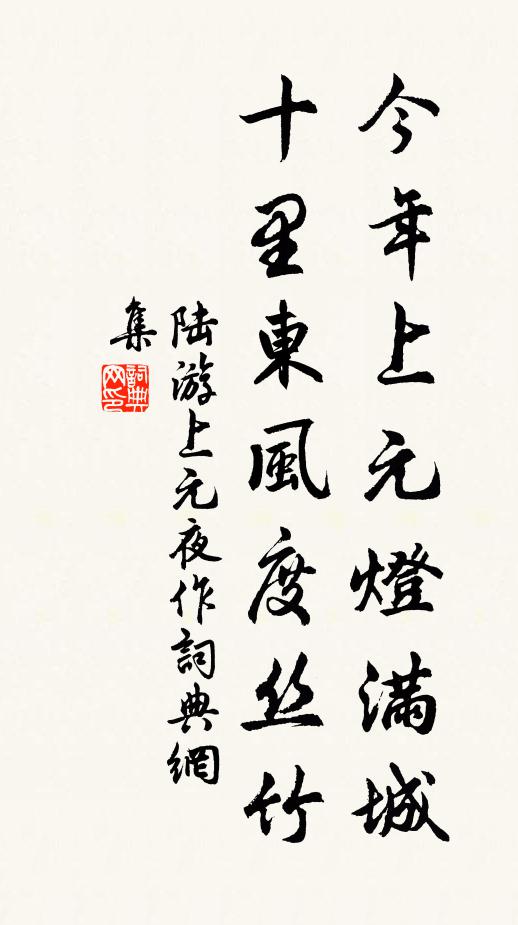 今年上元燈滿城
十里東風度丝竹
陆游上元夜作詞典網
集
詞典网印